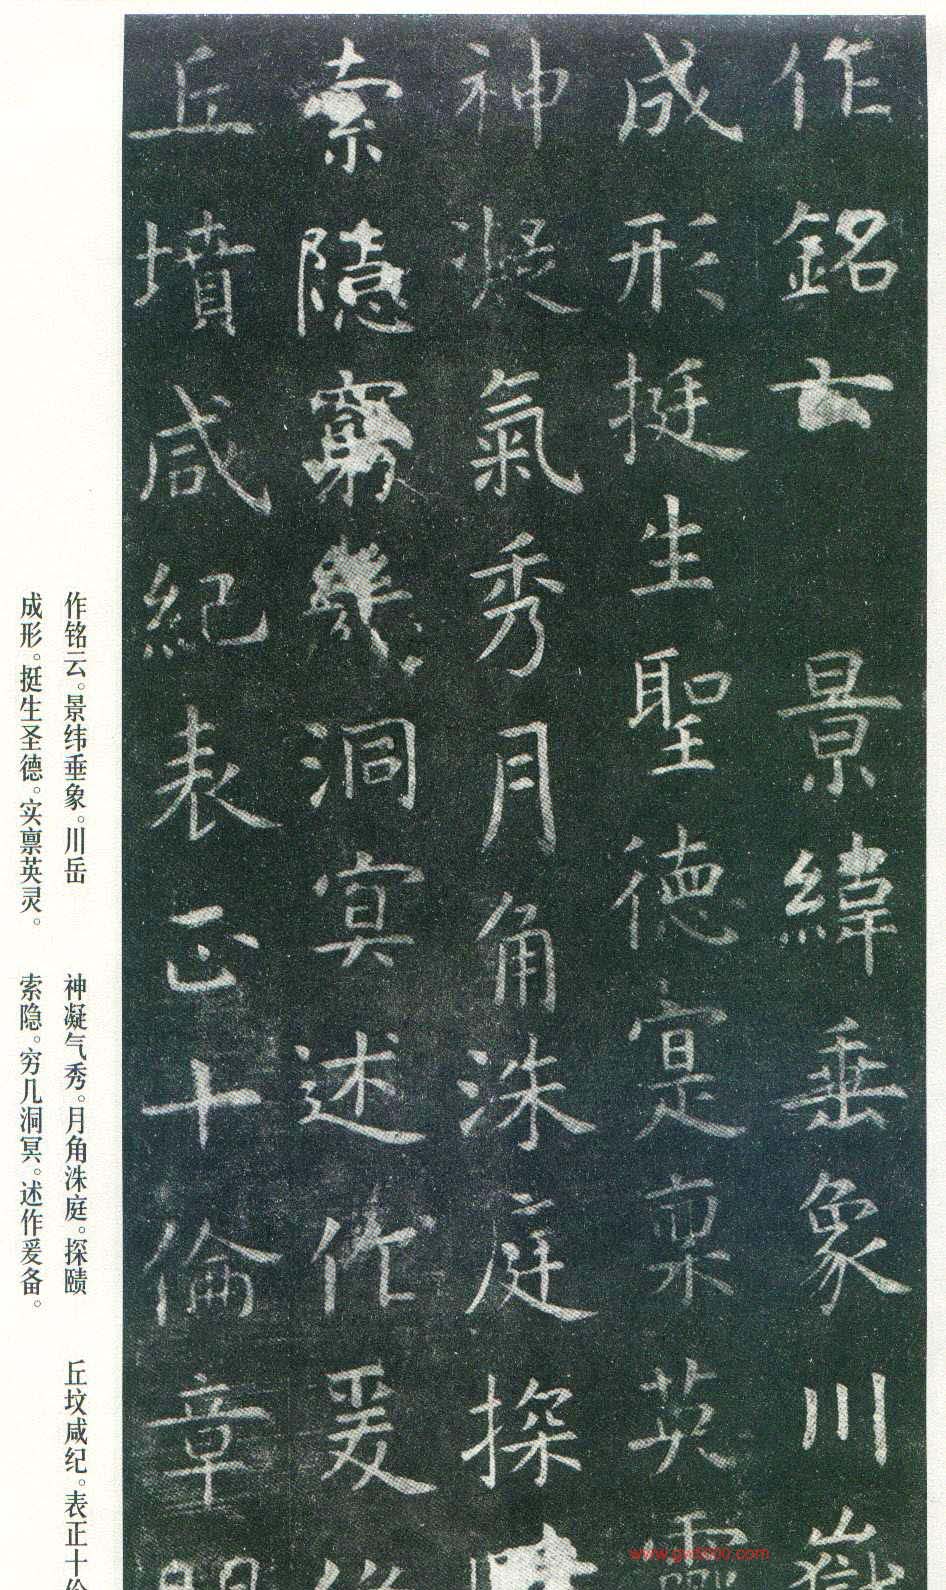 作銘云景緯垂象川嶽
成形挺生聖德寔禀英靈
神凝氣秀月角洙庭探
索隱窮幾洞冥述作爰
丘墳咸紀表正十倫章
作铭云。景纬垂象。川岳
成形。挺生圣德。实禀英灵。
神凝气秀。月角洙庭。探赜
索隐。穷几洞冥。述作爰备。
丘坟咸纪。表正十伦
www.gw8000.com